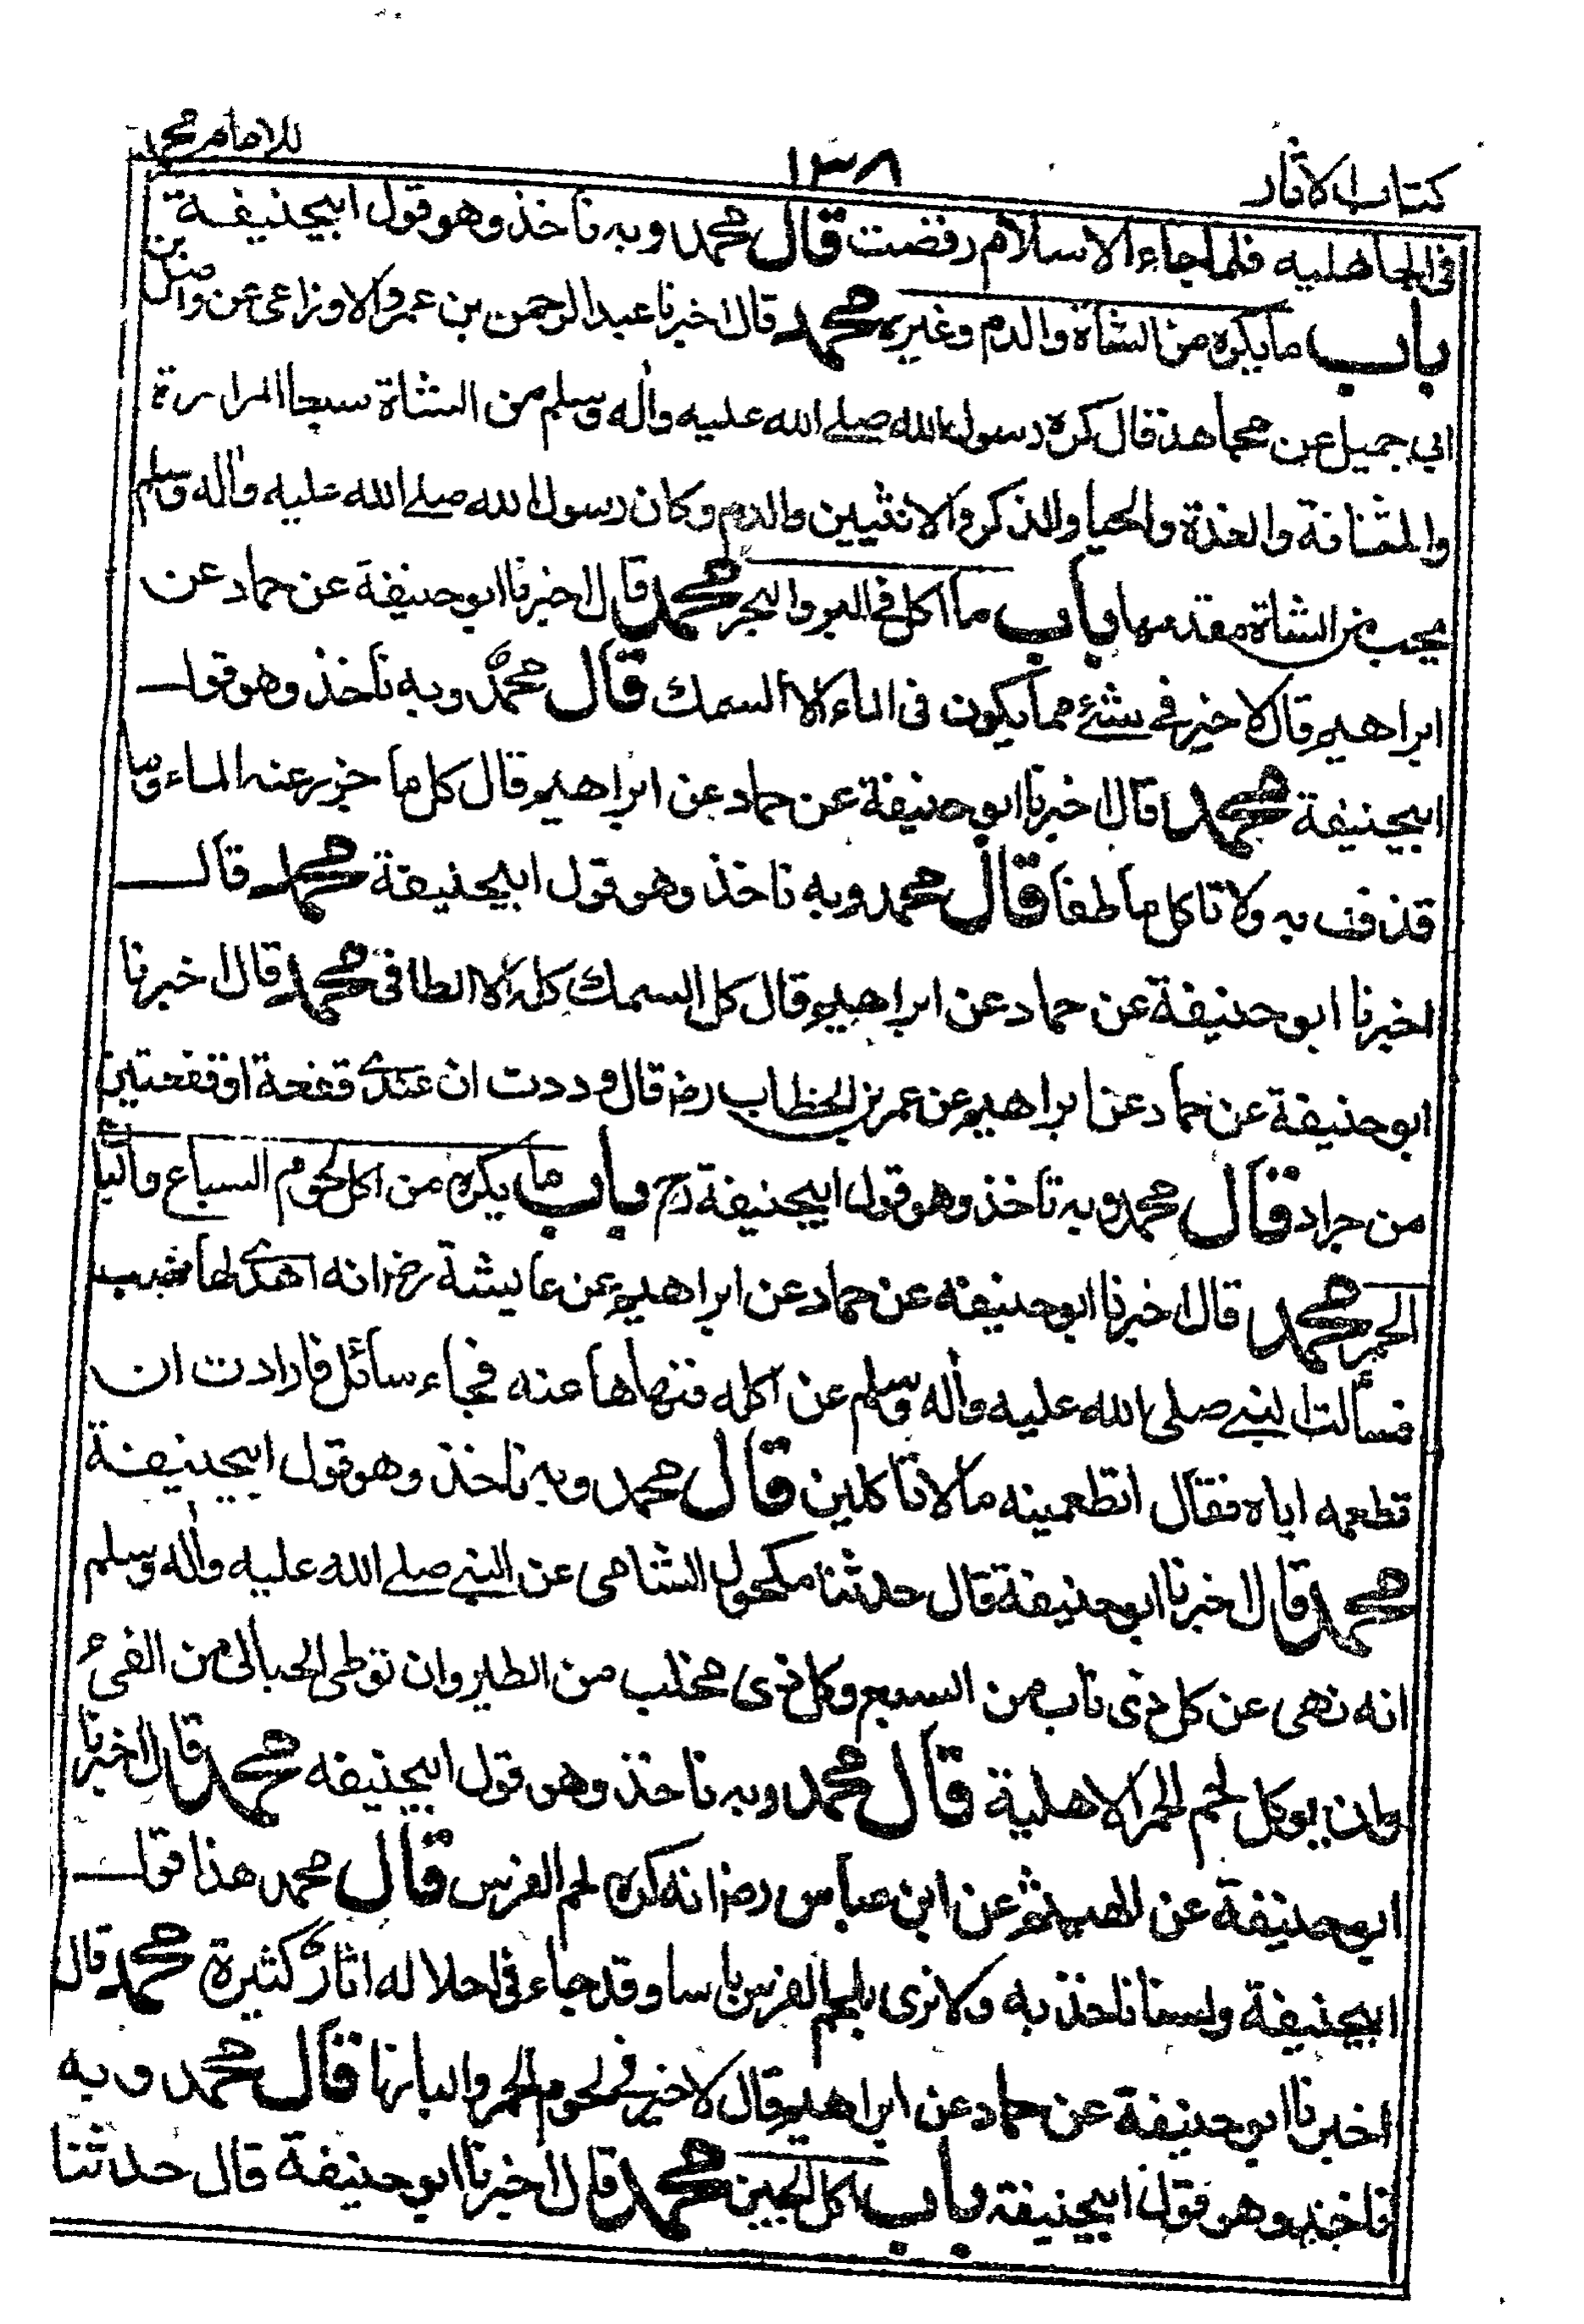 كتاب الاثار ١٣٨ للامام محمد
فى الجاهليه فلما جاء الاسلام رفضت قال محمد وبه ناخذ وهو قول ابيحنيفة
باب ما يكره من الشاة والدم وغيره محمد قال اخبرنا عبد الرحمن بن عمرو الاوزاعى عن واصل بن
ابي جميل عن مجاهد قال كره رسول الله صلے الله عليه واٰله وسلم من الشاة سبعا المرارة
والمثانة والغدة والحيا والذكر والانثيين والدم وكان رسول الله صلے الله عليه واٰله وسلم
يحب من الشاة مقدمها باب ما اكل فى البر والبحر محمد قال اخبرنا ابو حنيفة عن حماد عن
ابراهيم قال لا خير فے شئ مما يكون فى الماء الا السمك قال محمدؒ وبه ناخذ وهو قول
ابيحنيفة محمد قال اخبرنا ابو حنيفة عن حماد عن ابراهيم قال كل ما جزر عنه الماء وما
قذف به ولا تاكل ما طفا قال محمد وبه ناخذ وهو قول ابيحنيفة محمد قال
اخبرنا ابو حنيفة عن حماد عن ابراهيم قال كل السمك كله الا الطافى محمد قال اخبرنا
ابو حنيفة عن حماد عن ابراهيم عن عمر بن الخطاب رض قال وددت ان عندے قفعة او قفعتين
من جراد قال محمد وبه ناخذ وهو قول ابيحنيفة رح باب ما يكره من اكل لحوم السباع والبان
الحمر محمد قال اخبرنا ابو حنيفة عن حماد عن ابراهيم عن عايشة رض انه اهدے لها ضب
فسألت النبے صلى الله عليه واٰله وسلم عن اكله فنهاها عنه فجاء سائل فارادت ان
تطعمه اياه فقال اتطعمينه ما لا تاكلين قال محمد وبه ناخذ وهو قول ابيحنيفة
محمد قال اخبرنا ابو حنيفة قال حدثنا مكحول الشامى عن النبے صلے الله عليه واٰله وسلم
انه نهى عن كل ذى ناب من السبع وكل ذى مخلب من الطير وان توطى الحبالى من الفئ
وان يوكل لحم الحمر الاهلية قال محمد وبه ناخذ وهو قول ابيحنيفه محمد قال اخبرنا
ابو حنيفة عن الهيثم عن ابن عباس رض انه كره لحم الفرس قال محمد هذا قول
ابيحنيفة ولسنا ناخذ به ولا نرى بلحم الفرس باسا وقد جاء فى احلاله اثار كثيرة محمد قال
اخبرنا ابو حنيفة عن حماد عن ابراهيم قال لا خير فے لحوم الحمر والبانها قال محمد وبه
ناخذ وهو قول ابيحنيفه باب اكل الجبن محمد قال اخبرنا ابو حنيفة قال حدثنا